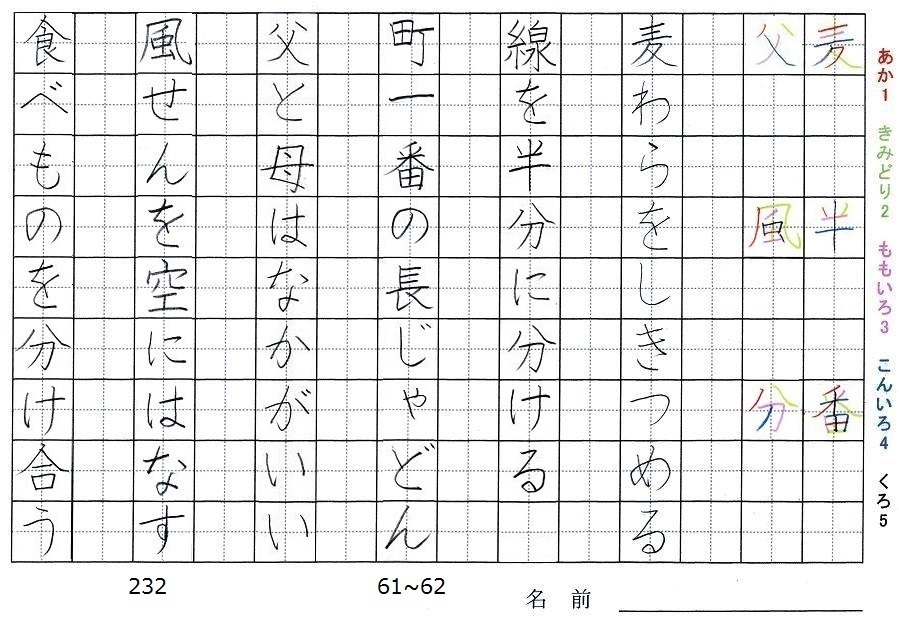 あか1 きみどり2 ももいろ3 こんいろ4 くろ5
麦半番
父風分
麦わらをしきつめる
線を半分に分ける
町一番の長じゃどん
父と母はなかがいい
風せんを空にはなす
食べものを分け合う
232
61~62
名前